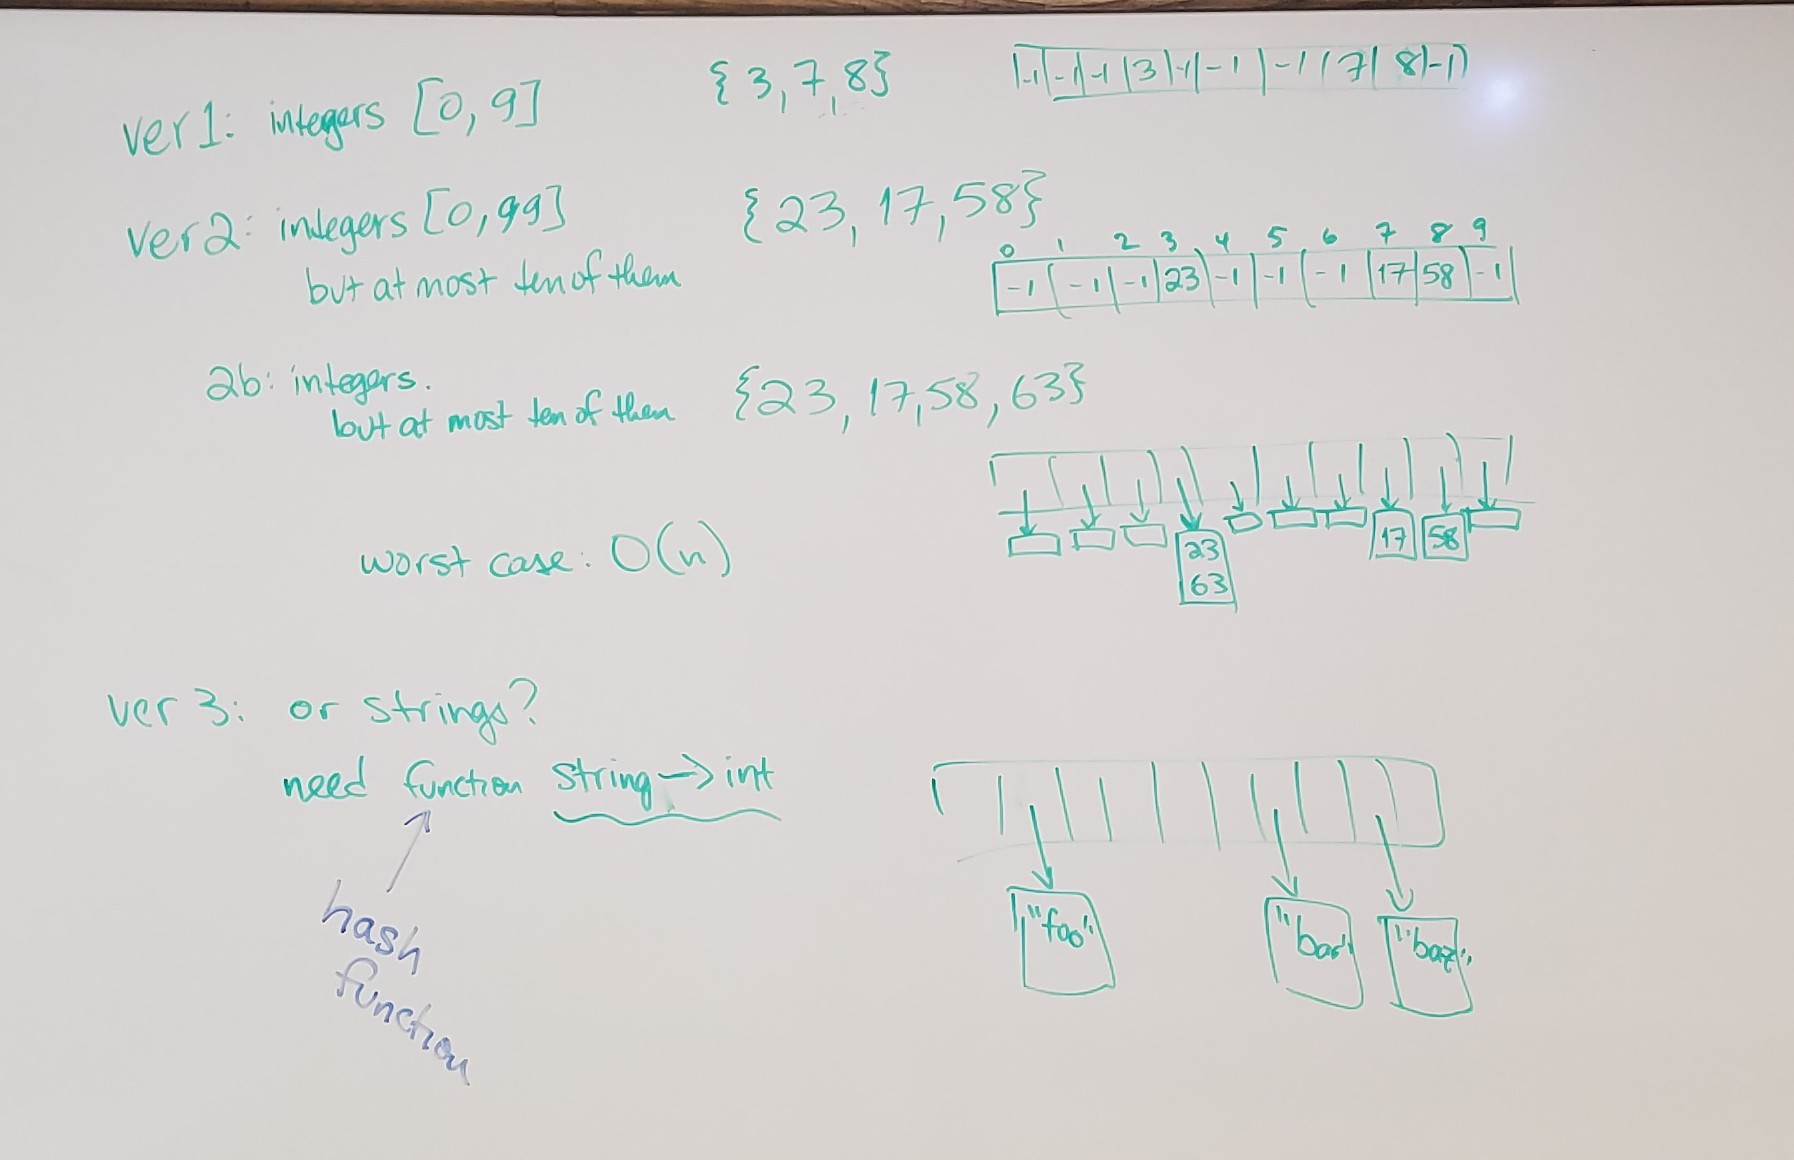 ver 1: integers [0, 9] {3, 7, 8} -1 -1 -1 3 -1 -1 -1 7 8 -1
ver 2: integers [0, 99] {23, 17, 58}
but at most ten of them
0 1 2 3 4 5 6 7 8 9
-1 -1 -1 23 -1 -1 -1 17 58 -1
2b: integers. {23, 17, 58, 63}
but at most ten of them
23 17 58
63
worst case: O(n)
ver 3: or strings?
need function string → int
hash
function
"foo" "bar" "baz"